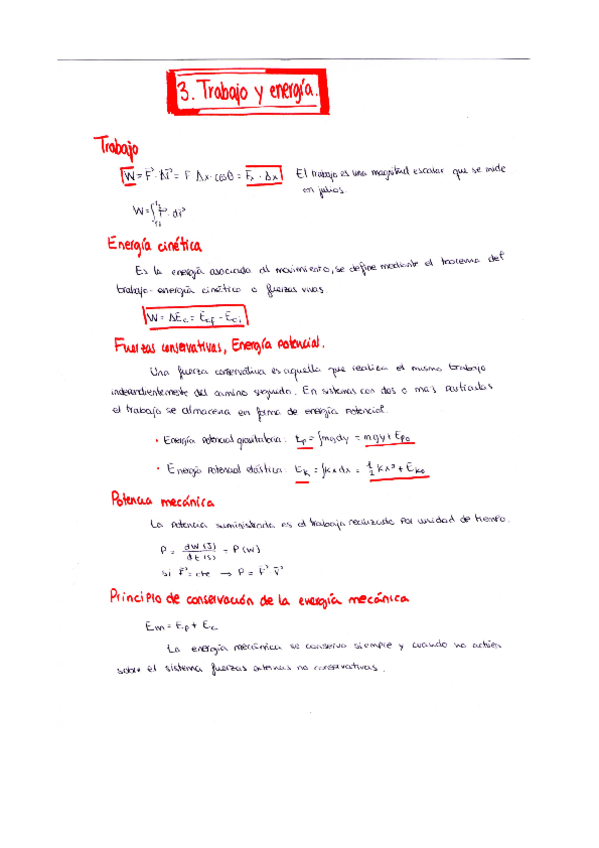 3. Trabajo y energía.
Trabajo
W = F⃗ · Δr⃗ = F Δx · cosθ = Fₓ · Δx El trabajo es una magnitud escalar que se mide
en julios.
W = ∫ F⃗ · dr⃗
Energía cinética
Es la energía asociada al movimiento, se define mediante el teorema del
trabajo-energía cinética o fuerzas vivas.
W = ΔEc = Ecf - Eci
Fuerzas conservativas, Energía potencial.
Una fuerza conservativa es aquella que realiza el mismo trabajo
independientemente del camino seguido. En sistemas con dos o mas partículas
el trabajo se almacena en forma de energía potencial.
• Energía potencial gravitatoria: Ep = ∫mgdy = mgy + Ep₀
• Energía potencial elástica: Ek = ∫kxdx = 1/2 kx² + Ek₀
Potencia mecánica
La potencia suministrada es el trabajo realizado por unidad de tiempo.
P = dW (J) / dt (s) = P (W)
si F⃗ = cte → P = F⃗ V⃗
Principio de conservación de la energía mecánica
Em = Ep + Ec
La energía mecánica se conserva siempre y cuando no actúen
sobre el sistema fuerzas externas no conservativas.